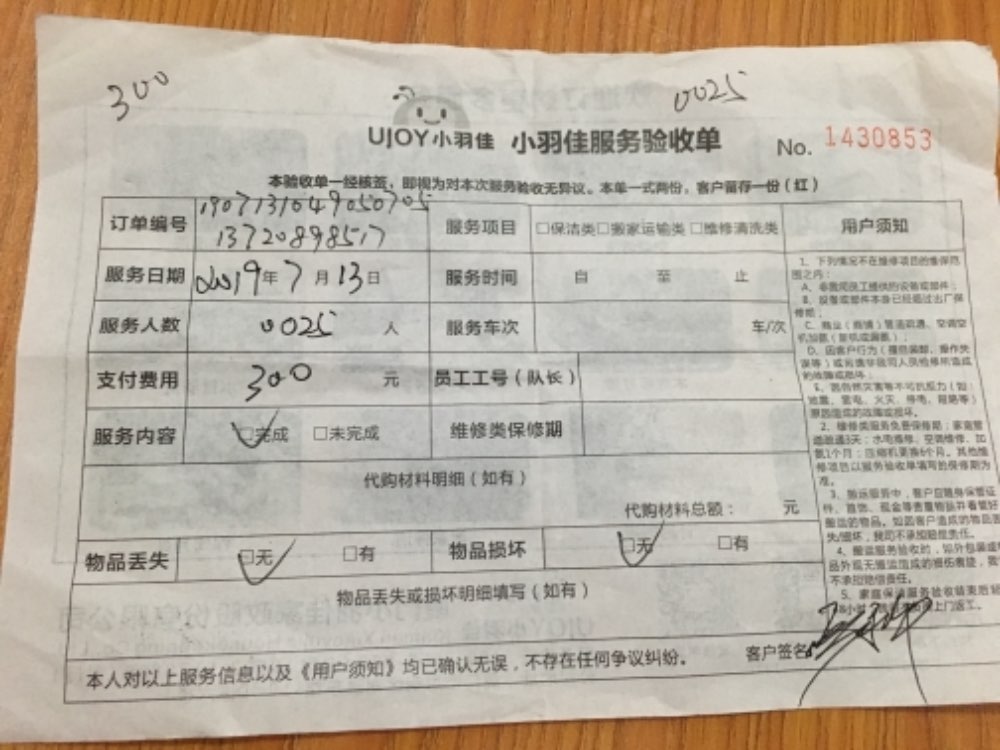 300
0025
UJOY小羽佳 小羽佳服务验收单 No. 1430853
本验收单一经核签，即视为对本次服务验收无异议。本单一式两份，客户留存一份（红）
订单编号 1907131049050705
13720898517
服务项目 □保洁类□搬家运输类□维修清洗类
用户须知
服务日期 2019年7月13日 服务时间 自 至 止
服务人数 0025 人 服务车次 车/次
支付费用 300 元 员工工号（队长）
服务内容 □完成 □未完成 维修类保修期
代购材料明细（如有）
代购材料总额： 元
物品丢失 □无 □有 物品损坏 □无 □有
物品丢失或损坏明细填写（如有）
本人对以上服务信息以及《用户须知》均已确认无误，不存在任何争议纠纷。 客户签名
1、下列情况不在维修项目的维保范
围之内：
A、非我司员工提供的设备或部件；
B、设备或部件本身已经超过出厂保
修期；
原因造成的故障或损坏。
2、维修类服务免费保修期：家庭管
道疏通3天；水电维修、空调维修、加
氨1个月；压缩机更换6个月。其他维
修项目以服务验收单填写的保修期为
准。
3、搬运服务中，客户应随身保管证
件、首饰、现金等贵重物品并看管好
搬运的物品。如因客户造成的物品丢
失/损坏，我司不承担赔偿责任。
4、搬运服务验收时，如外包装或物
不承担赔偿责任。